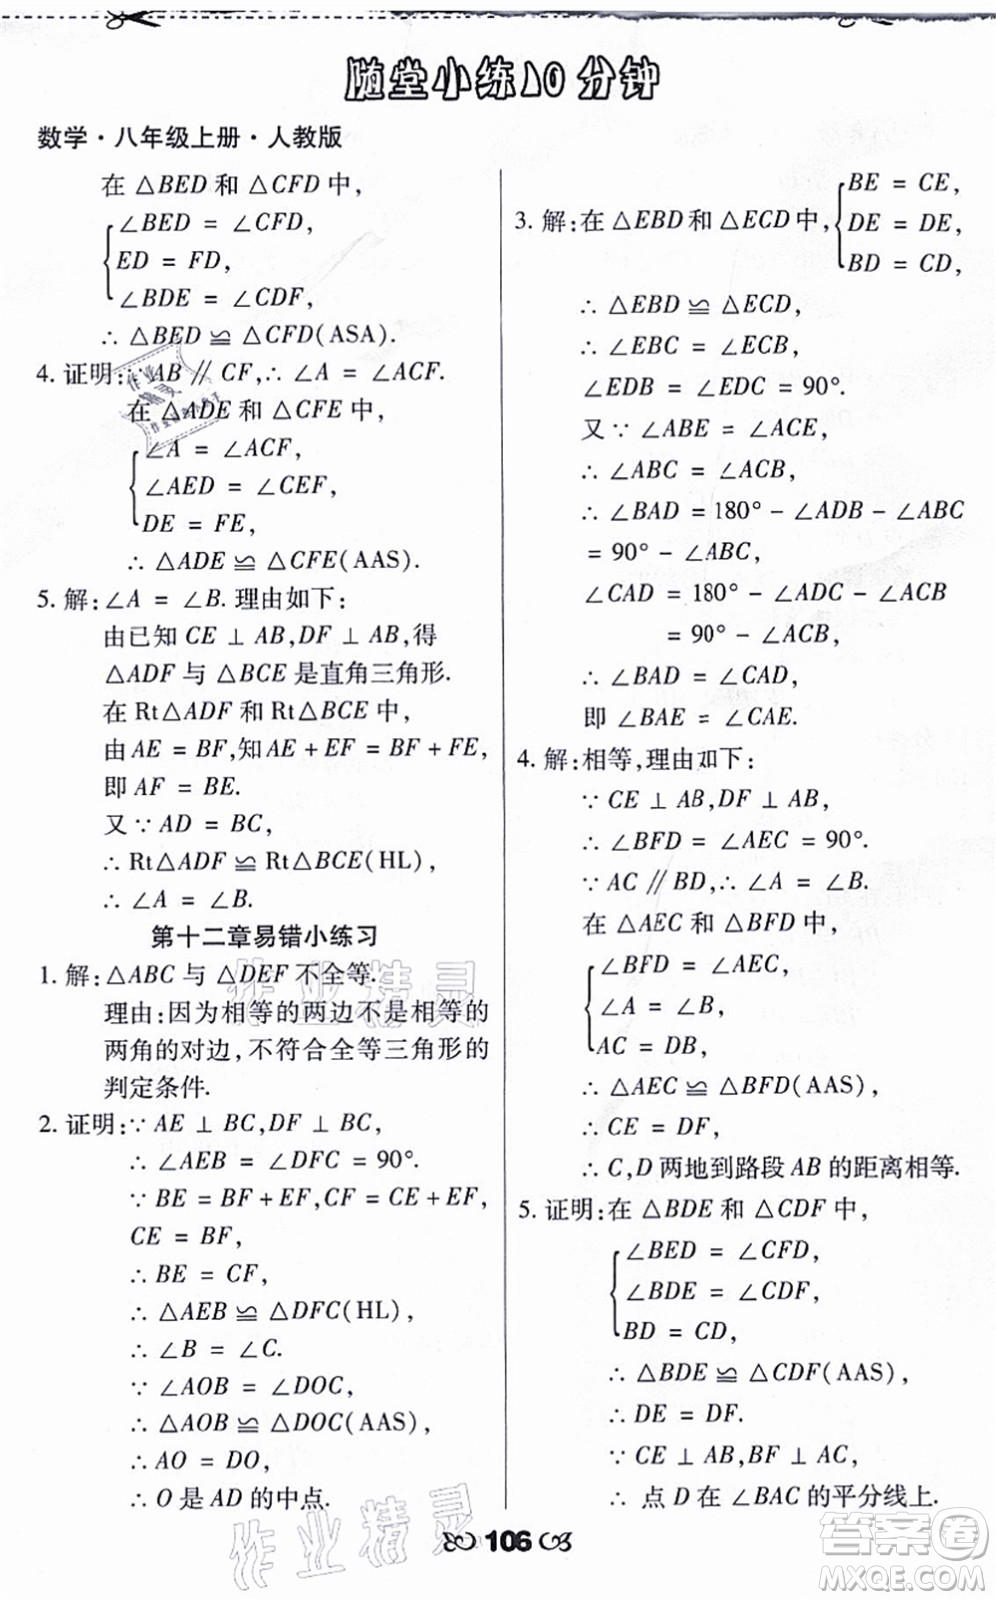 随堂小练10分钟
数学·八年级上册·人教版
在 △BED 和 △CFD 中,
∠BED = ∠CFD,
ED = FD,
∠BDE = ∠CDF,
∴ △BED ≌ △CFD(ASA).
4. 证明:∵AB∥CF,∴∠A = ∠ACF.
在 △ADE 和 △CFE 中,
∠A = ∠ACF,
∠AED = ∠CEF,
DE = FE,
∴ △ADE ≌ △CFE(AAS).
5. 解:∠A = ∠B.理由如下:
由已知 CE ⊥ AB,DF ⊥ AB,得
△ADF 与 △BCE 是直角三角形.
在 Rt△ADF 和 Rt△BCE 中,
由 AE = BF,知AE + EF = BF + FE,
即 AF = BE.
又∵ AD = BC,
∴ Rt△ADF ≌ Rt△BCE(HL),
∴ ∠A = ∠B.
第十二章易错小练习
1. 解:△ABC 与 △DEF 不全等.
理由:因为相等的两边不是相等的
两角的对边,不符合全等三角形的
判定条件.
2. 证明:∵ AE ⊥ BC,DF ⊥ BC,
∴ ∠AEB = ∠DFC = 90°.
∵ BE = BF + EF,CF = CE + EF,
CE = BF,
∴ BE = CF,
∴ △AEB ≌ △DFC(HL),
∴ ∠B = ∠C.
∵ ∠AOB = ∠DOC,
∴ △AOB ≌ △DOC(AAS),
∴ AO = DO,
∴ O 是 AD 的中点.
BE = CE,
3. 解:在 △EBD 和 △ECD 中, DE = DE,
BD = CD,
∴ △EBD ≌ △ECD,
∴ ∠EBC = ∠ECB,
∠EDB = ∠EDC = 90°.
又∵ ∠ABE = ∠ACE,
∴ ∠ABC = ∠ACB,
∴ ∠BAD = 180° - ∠ADB - ∠ABC
= 90° - ∠ABC,
∠CAD = 180° - ∠ADC - ∠ACB
= 90° - ∠ACB,
∴ ∠BAD = ∠CAD,
即 ∠BAE = ∠CAE.
4. 解:相等,理由如下:
∵ CE ⊥ AB,DF ⊥ AB,
∴ ∠BFD = ∠AEC = 90°.
∵ AC∥BD,∴ ∠A = ∠B.
在 △AEC 和 △BFD 中,
∠BFD = ∠AEC,
∠A = ∠B,
AC = DB,
∴ △AEC ≌ △BFD(AAS),
∴ CE = DF,
∴ C,D 两地到路段 AB 的距离相等.
5. 证明:在 △BDE 和 △CDF 中,
∠BED = ∠CFD,
∠BDE = ∠CDF,
BD = CD,
∴ △BDE ≌ △CDF(AAS),
∴ DE = DF.
∵ CE ⊥ AB,BF ⊥ AC,
∴ 点 D 在 ∠BAC 的平分线上.
106
作业精灵
作业精灵
答案圈
MXQE.COM